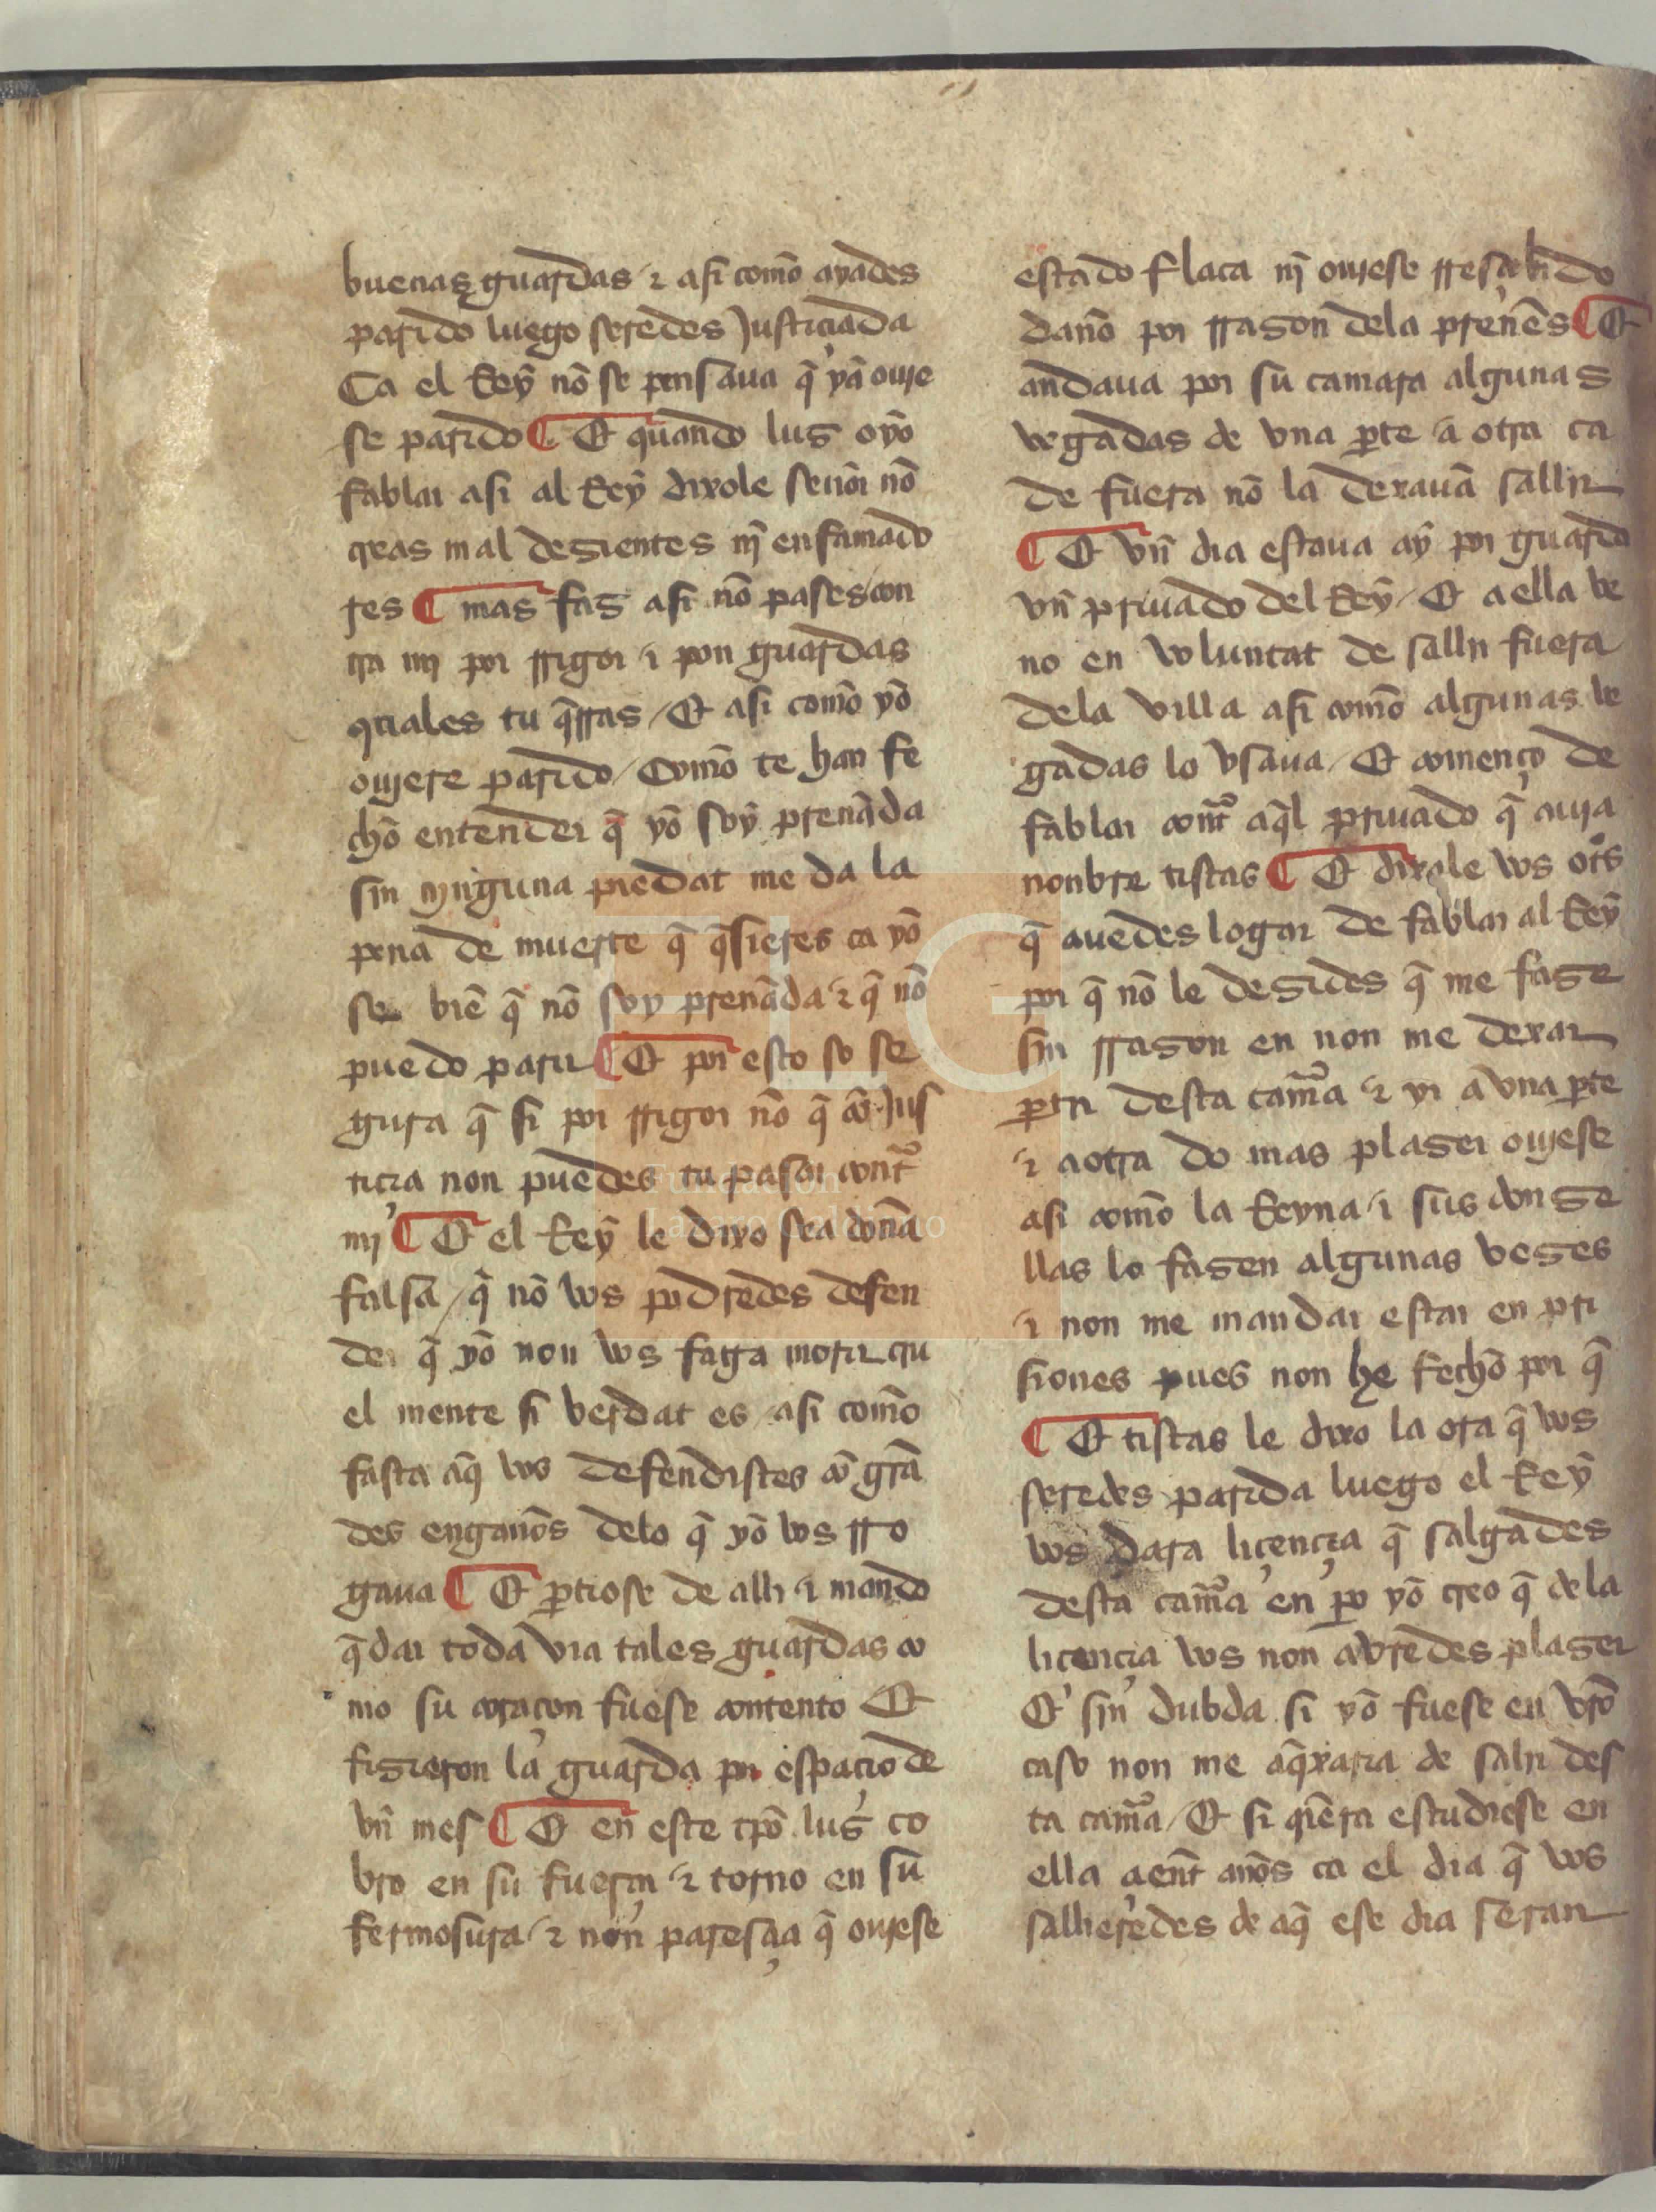 buenas guardas ⁊ asi comō ayades
parido luego seredes Justiçiada
Ca el Reȳ nō se pensaua q̄ yā ouie
se parido ¶ Et quando lus oyō
fablar asi al Reȳ dixole señor nō
creas mal desientes nj̄ enfamado
res ¶ mas fas asi nō pases con
tra mj por rrigor ⁊ pon guardas
quales tu q̄rras / Et asi comō yō
oujere parido / Comō te han fe
chō entender q̄ yō soȳ preñada
sin njnguna piedat me da la
pena de muerte q̄ q̄sieres ca yō
se biē q̄ nō soy preñada ⁊ q̄ nō
puedo parir ¶ Et por esto so se
gura q̄ si por rrigor nō q̄ cō Jus
tiçia non puedes tu pasar cont̄
mj ¶ Et el Reȳ le dixo sea doña
falsa / q̄ nō vos podredes defen
der q̄ yō non vos faga morir cru
el mente si verdat es / asi comō
fasta aq̄ vos defendistes cō grā
des engaños delo q̄ yō vos rro
gaua ¶ Et ꝑtiose de alli ⁊ mando
q̄dar toda via tales guardas co
mo su coraçon fuese contento Et
fisieron la guarda por espaçio de
vn̄ mes ¶ Et en este tpō lus co
bro en su fuerça ⁊ torno en su
fermosura / ⁊ non paresçia q̄ oujese
estado flaca nj̄ oujese rresçebido
daño por rrason dela preñes ¶ Et
andaua por su camara algunas
vegadas de vna ꝑte a otra ca
de fuera nō la dexauā sallir
¶ Et vn̄ dia estaua aȳ por guarda
vn̄ priuado del Reȳ / Et a ella ve
no en voluntat de sallir fuera
dela villa asi comō algunas ve
gadas lo vsaua / Et començo de
fablar cont̄ aq̄l priuado q̄ auja
nonbre tistas ¶ Et dixole vos ot̄s
q̄ auedes logar de fablar al Reȳ
por q̄ nō le desides q̄ me fase
sin rrason en non me dexar
ꝑtir desta cam̄a ⁊ yr a vna ꝑte
⁊ a otra do mas plaser oujese
asi comō la Reyna ⁊ sus donse
llas lo fasen algunas veses
⁊ non me mandar estar en pri
siones pues non he fechō por q̄
¶ Et tistas le dixo la ora q̄ vos
seredes parida luego el Reȳ
vos dara liçençia q̄ salgades
desta cam̄a en ꝑo yō creo q̄ dela
liçençia vos non avredes plaser
Et sin dubda si yō fuese en vrō
caso non me aq̄xaria de salir des
ta cam̄a / Et si q̄era estudiese en
ella çient años ca el dia q̄ vos
salliredes de aq̄ ese dia seran